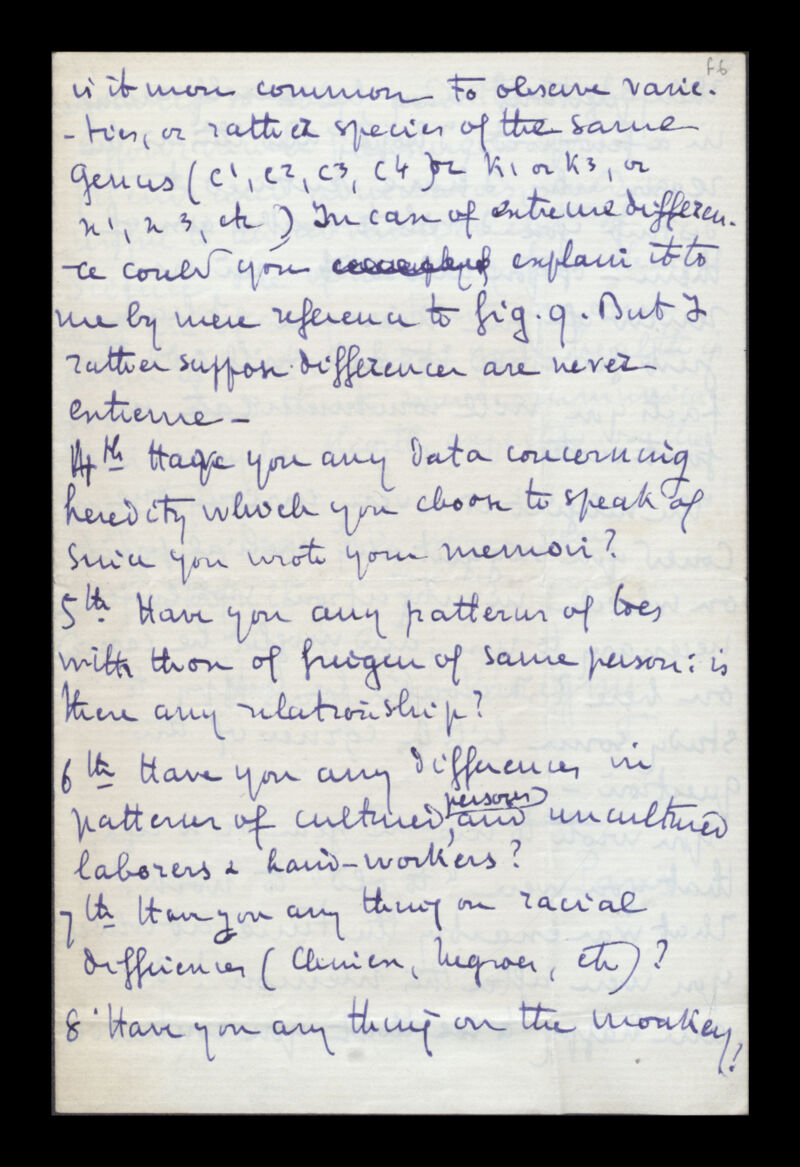 f6
is it more common to observe varie-
-ties, or rather species of the same
genus (c1, c2, c3, c4) or K1 or K3, or
n1, n3, etc) In case of extreme differen-
ce could you explain it to
me by mere reference to fig. 9. But I
rather suppose differences are never
extreme -
4th Have you any data concerning
heredity which you choose to speak of
since you wrote your memoir?
5th Have you any patterns of toes
with those of fingers of same person: is
there any relationship?
6th Have you any differences in
patterns of cultured, persons and uncultured
laborers & hand-workers?
7th Have you any thing on racial
differences (Chinese, Negroes, etc)?
8 Have you any thing on the monkey?